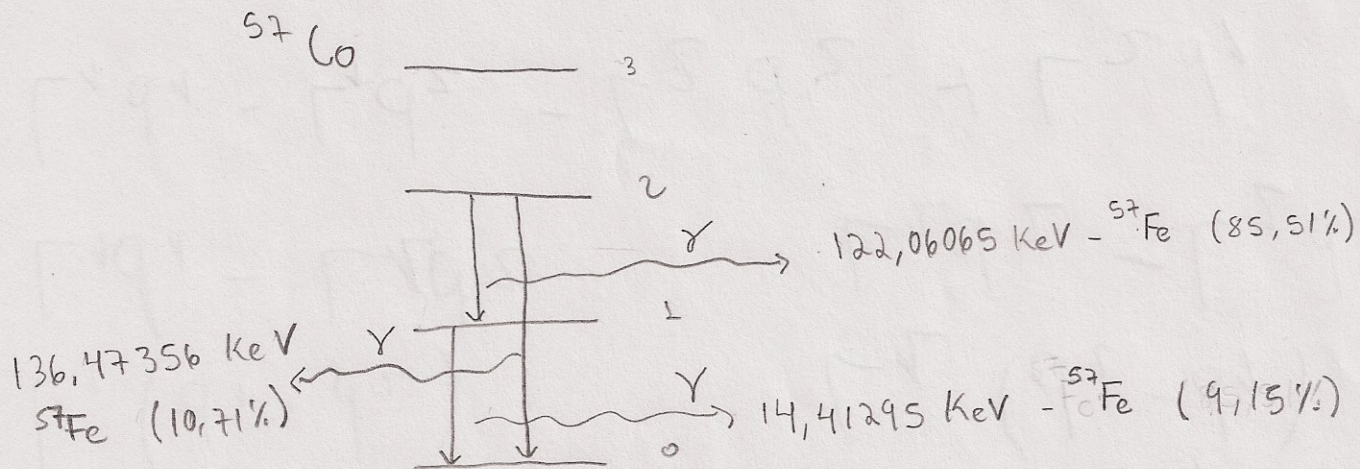 57 Co
3
2
γ
122,06065 KeV - 57Fe (85,51%)
1
136,47356 KeV
γ
57Fe (10,71%)
γ
14,41295 KeV - 57Fe (9,15%)
0